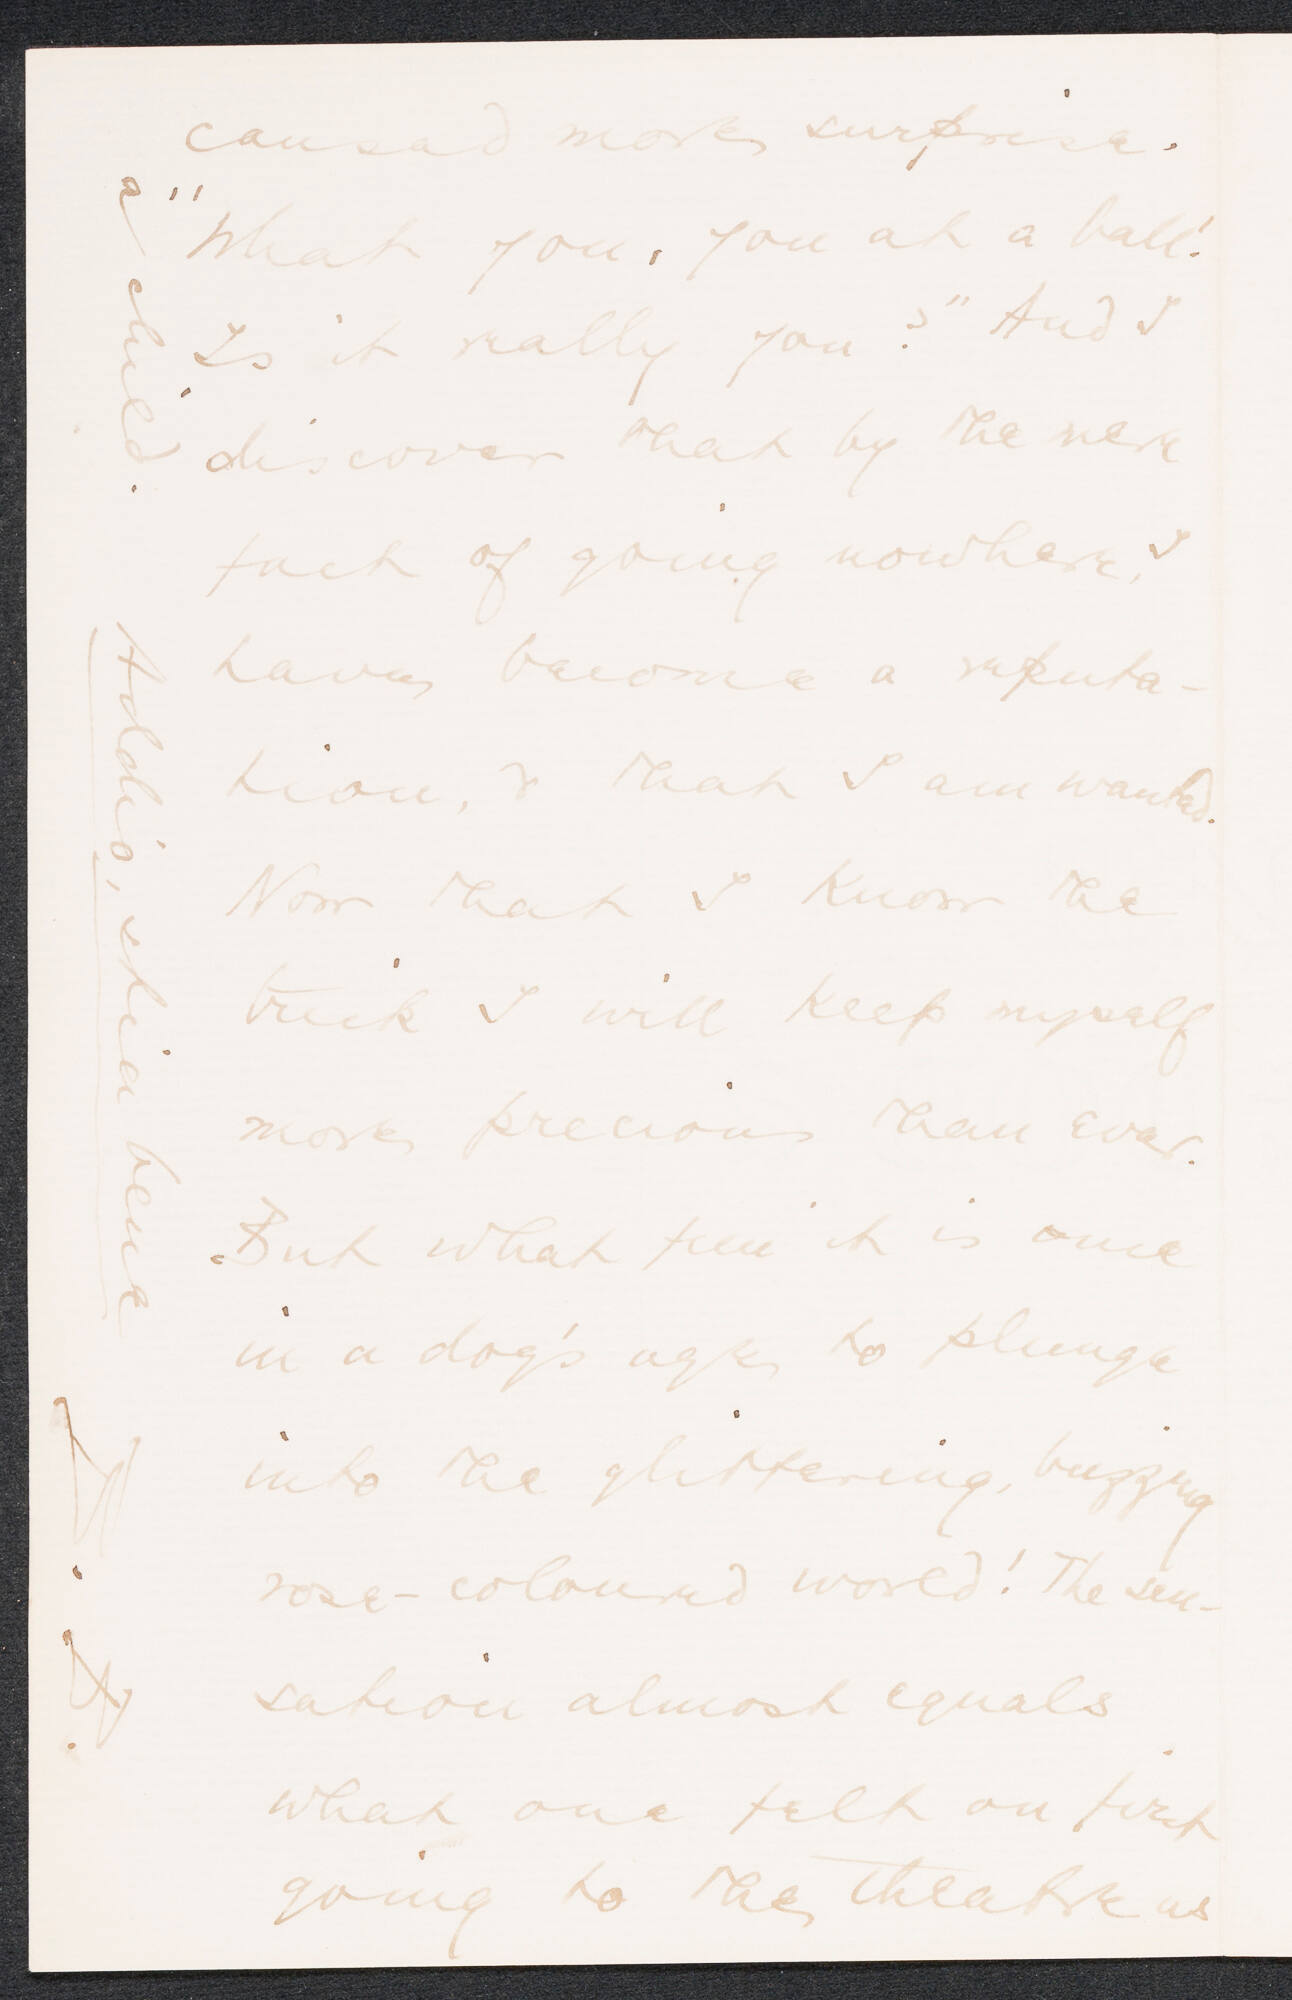 caused more surprise.
"What you, you at a ball!
Is it really you?" And I
discover that by the mere
fact of going nowhere, I
have become a reputa-
tion, & that I am wanted.
Now that I know the
trick I will keep myself
more precious than ever.
But what fun it is once
in a dog's age to plunge
into the glittering, buzzing
rose-coloured world! The sen-
sation almost equals
what one felt on first
going to the theatre as
a child.
Addio, stia bene
V. R.